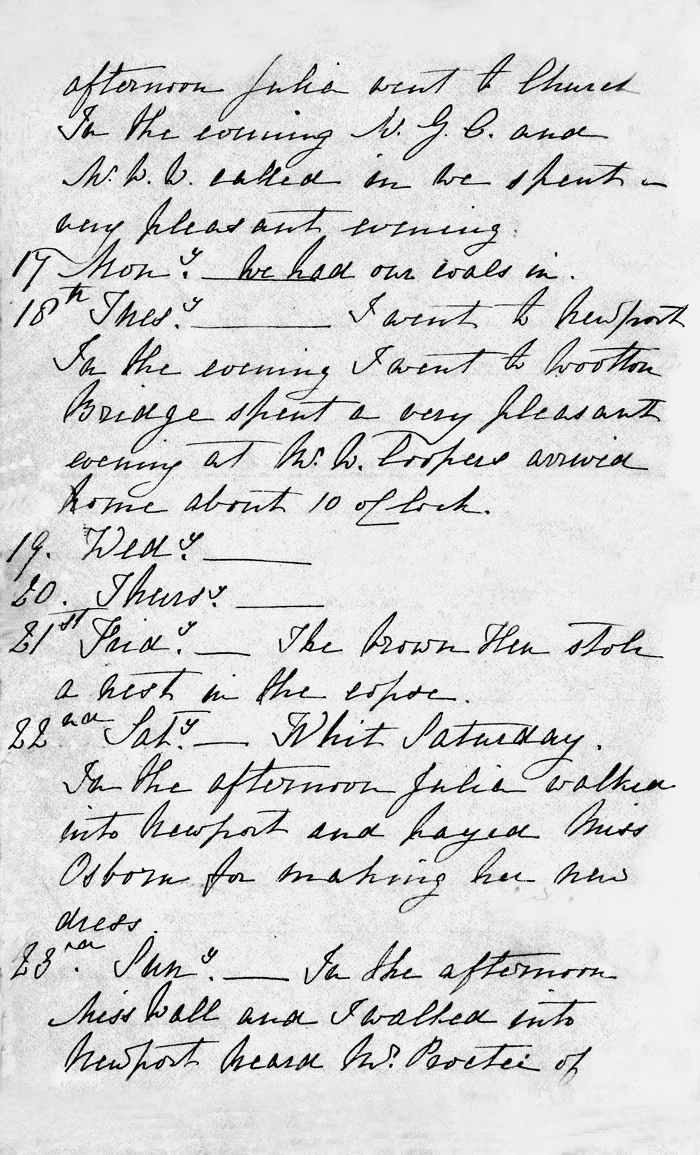 afternoon Julia went to Church
In the evening N. G. C. and
W. W. called in we spent a
very pleasant evening.
17 Mon.y — We had our coals in.
18th Tues.y — I went to Newport
In the evening I went to Wootton
Bridge spent a very pleasant
evening at Mr. W. Coopers arrived
home about 10 oClock.
19. Wed.y —
20. Thurs.y —
21st Frid.y — The brown Hen stole
a nest in the copse.
22nd Sat.y — Whit Saturday.
In the afternoon Julia walked
into Newport and payed Miss
Osborn for making her new
dress.
23rd. Sun.y. — In the afternoon
Miss Wall and I walked into
Newport heard Mr. Procter of